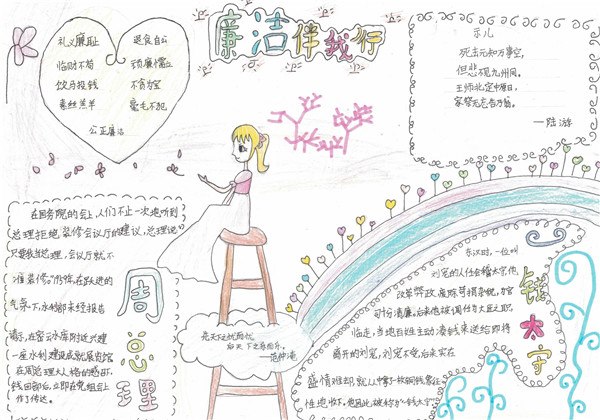 廉洁伴我行
礼义廉耻 退食自公
临财不苟 顽廉懦立
饮马投钱 不贪为宝
羔丝羔羊 毫毛不犯
公正廉洁
示儿
死去元知万事空,
但悲不见九州同。
王师北定中原日,
家祭无忘告乃翁。
—陆游
在国务院的会上,人们不止一次地听到
总理拒绝装修会议厅的建议,总理说:
只要我当总理,会议厅就不
准装修。
气氛下,水利部未经报告
请示,在密云水库附近兴建
一座水利建设成就展览馆
在周总理
周总理
先天下之忧而忧,
后天下之乐而乐。
—范仲淹
东汉时,一位叫
刘宠的人任会稽太守,他
改革弊政,废除苛捐杂税,为官
十分清廉。后来他被调任为大匠之职,
临走,当地百姓主动凑钱来送给即将
离开的刘宠,刘宠不受。后来实在
盛情难却,就从中拿了一枚铜钱
钱太守